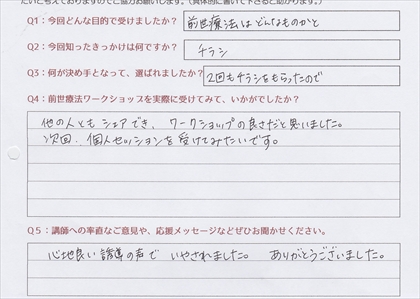 たいと考えておりますのでご協力お願いします。（具体的に書いて下さると助かります。）
Q1：今回どんな目的で受けましたか？ 前世療法はどんなものかと
Q2：今回知ったきっかけは何ですか？ チラシ
Q3：何が決め手となって、選ばれましたか？ 2回もチラシをもらったので
Q4：前世療法ワークショップを実際に受けてみて、いかがでしたか？
他の人ともシェアでき、ワークショップの良さだと思いました。
次回、個人セッションを受けてみたいです。
Q5：講師への率直なご意見や、応援メッセージなどぜひお聞かせください。
心地良い誘導の声でいやされました。ありがとうございました。